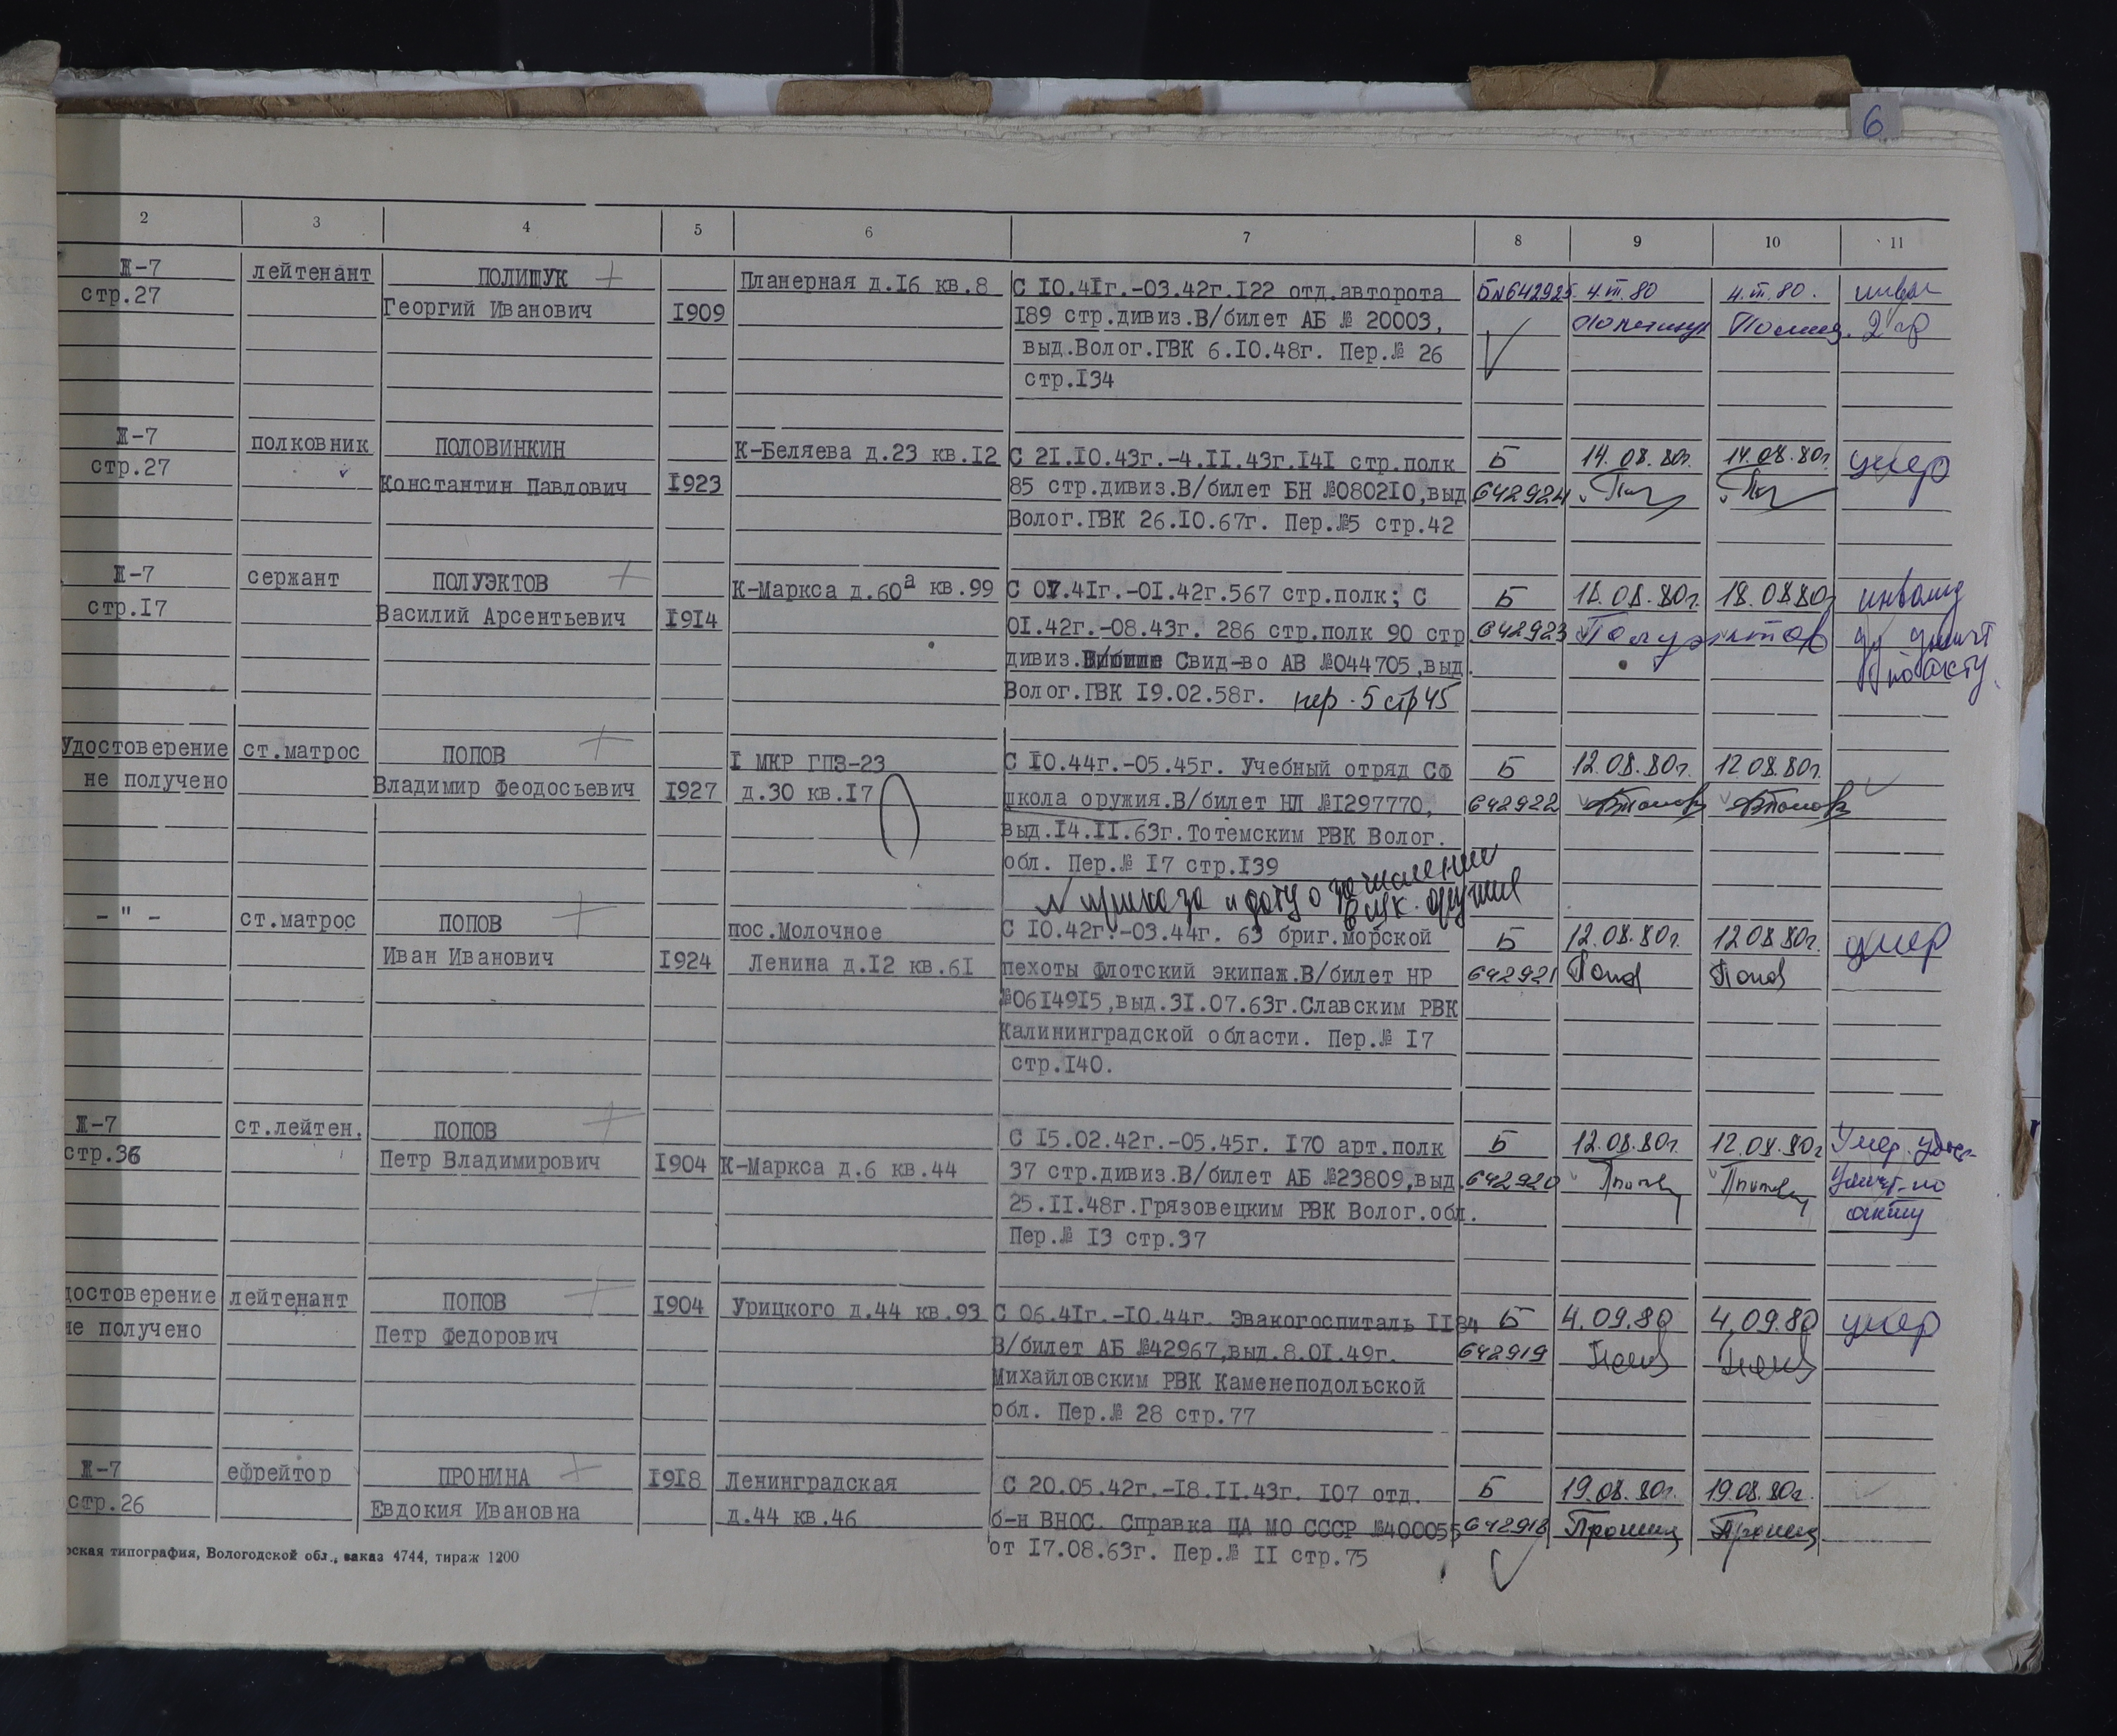 6
2 3 4 5 6 7 8 9 10 11
Ж-7 лейтенант ПОЛИЩУК Планерная д.I6 кв.8 С I0.4Iг.-03.42г.I22 отд.авторота Б№642925 4.III.80 4.III.80. инвал
стр.27 Георгий Иванович I909 I89 стр.дивиз.В/билет АБ № 20003, 2 гр
выд.Волог.ГВК 6.I0.48г. Пер.№ 26
стр.I34
Ж-7 полковник ПОЛОВИНКИН К-Беляева д.23 кв.I2 С 2I.I0.43г.-4.II.43г.I4I стр.полк Б 14.08.80г. 14.08.80г. умер
стр.27 Константин Павлович I923 85 стр.дивиз.В/билет БН №0802I0,выд 642924
Волог.ГВК 26.I0.67г. Пер.№5 стр.42
Ж-7 сержант ПОЛУЭКТОВ К-Маркса д.60а кв.99 С 07.4Iг.-0I.42г.567 стр.полк; С Б 18.08.80г. 18.08.80г инвалид
стр.I7 Василий Арсентьевич I9I4 0I.42г.-08.43г. 286 стр.полк 90 стр. 642923 Полуэктов
дивиз. Свид-во АВ №044705,выд. по акту.
Волог.ГВК I9.02.58г. пер.5 стр45
Удостоверение ст.матрос ПОПОВ I МКР ГПЗ-23 С I0.44г.-05.45г. Учебный отряд СФ Б 12.08.80г. 12.08.80г.
не получено Владимир Феодосьевич I927 д.30 кв.I7 школа оружия.В/билет НЛ №I297770, 642922
выд.I4.II.63г.Тотемским РВК Волог.
обл. Пер.№ I7 стр.I39
№ приказа и дату о зачислении
в шк. оружия
- " - ст.матрос ПОПОВ пос.Молочное С I0.42г.-03.44г. 63 бриг.морской Б 12.08.80г. 12.08.80г. умер
Иван Иванович I924 Ленина д.I2 кв.6I пехоты флотский экипаж.В/билет НР 642921 Попов Попов
№06I49I5,выд.3I.07.63г.Славским РВК
Калининградской области. Пер.№ I7
стр.I40.
Ж-7 ст.лейтен. ПОПОВ С I5.02.42г.-05.45г. I70 арт.полк Б 12.08.80г. 12.08.80г Умер.
стр.36 Петр Владимирович I904 К-Маркса д.6 кв.44 37 стр.дивиз.В/билет АБ №23809,выд. 642920 по
25.II.48г.Грязовецким РВК Волог.обл. акту
Пер.№ I3 стр.37
достоверение лейтенант ПОПОВ I904 Урицкого д.44 кв.93 С 06.4Iг.-I0.44г. Эвакогоспиталь II84 Б 4.09.80 4.09.80 умер
не получено Петр Федорович В/билет АБ №42967,выд.8.0I.49г. 642919
Михайловским РВК Каменеподольской
обл. Пер.№ 28 стр.77
Ж-7 ефрейтор ПРОНИНА I9I8 Ленинградская С 20.05.42г.-I8.II.43г. I07 отд. Б 19.08.80г. 19.08.80г.
стр.26 Евдокия Ивановна д.44 кв.46 б-н ВНОС. Справка ЦА МО СССР №400055 642918
от I7.08.63г. Пер.№ II стр.75
рская типография, Вологодской обл., заказ 4744, тираж 1200